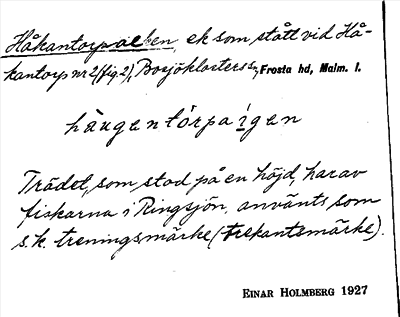 Håkantorpaeken, ek som stått vid Hå-
kantorp nr 2 (fig. 2), Bosjöklosters sn, Frosta hd, Malm. l.
hàugentórpaìgen
Trädet, som stod på en höjd, har av
fiskarna i Ringsjön använts som
s.k. treningsmärke (trekantsmärke).
EINAR HOLMBERG 1927